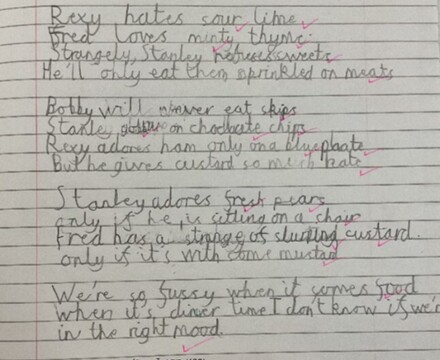 Rexy hates sour lime
Fred loves minty thyme.
Strangely, Stanley refuses sweets
He'll only eat them sprinkled on meats
Bobby will never eat skips
Stanley on choclate chips
Rexy adores ham only on a blue plate
But he gives custard so much hate
Stanley adores fresh pears
only if he is sitting on a chair
Fred has a strange of slurting custard.
only if it's with some mustard
We're so fussy when it comes food
when it's diner time I don't know if we're
in the right mood.